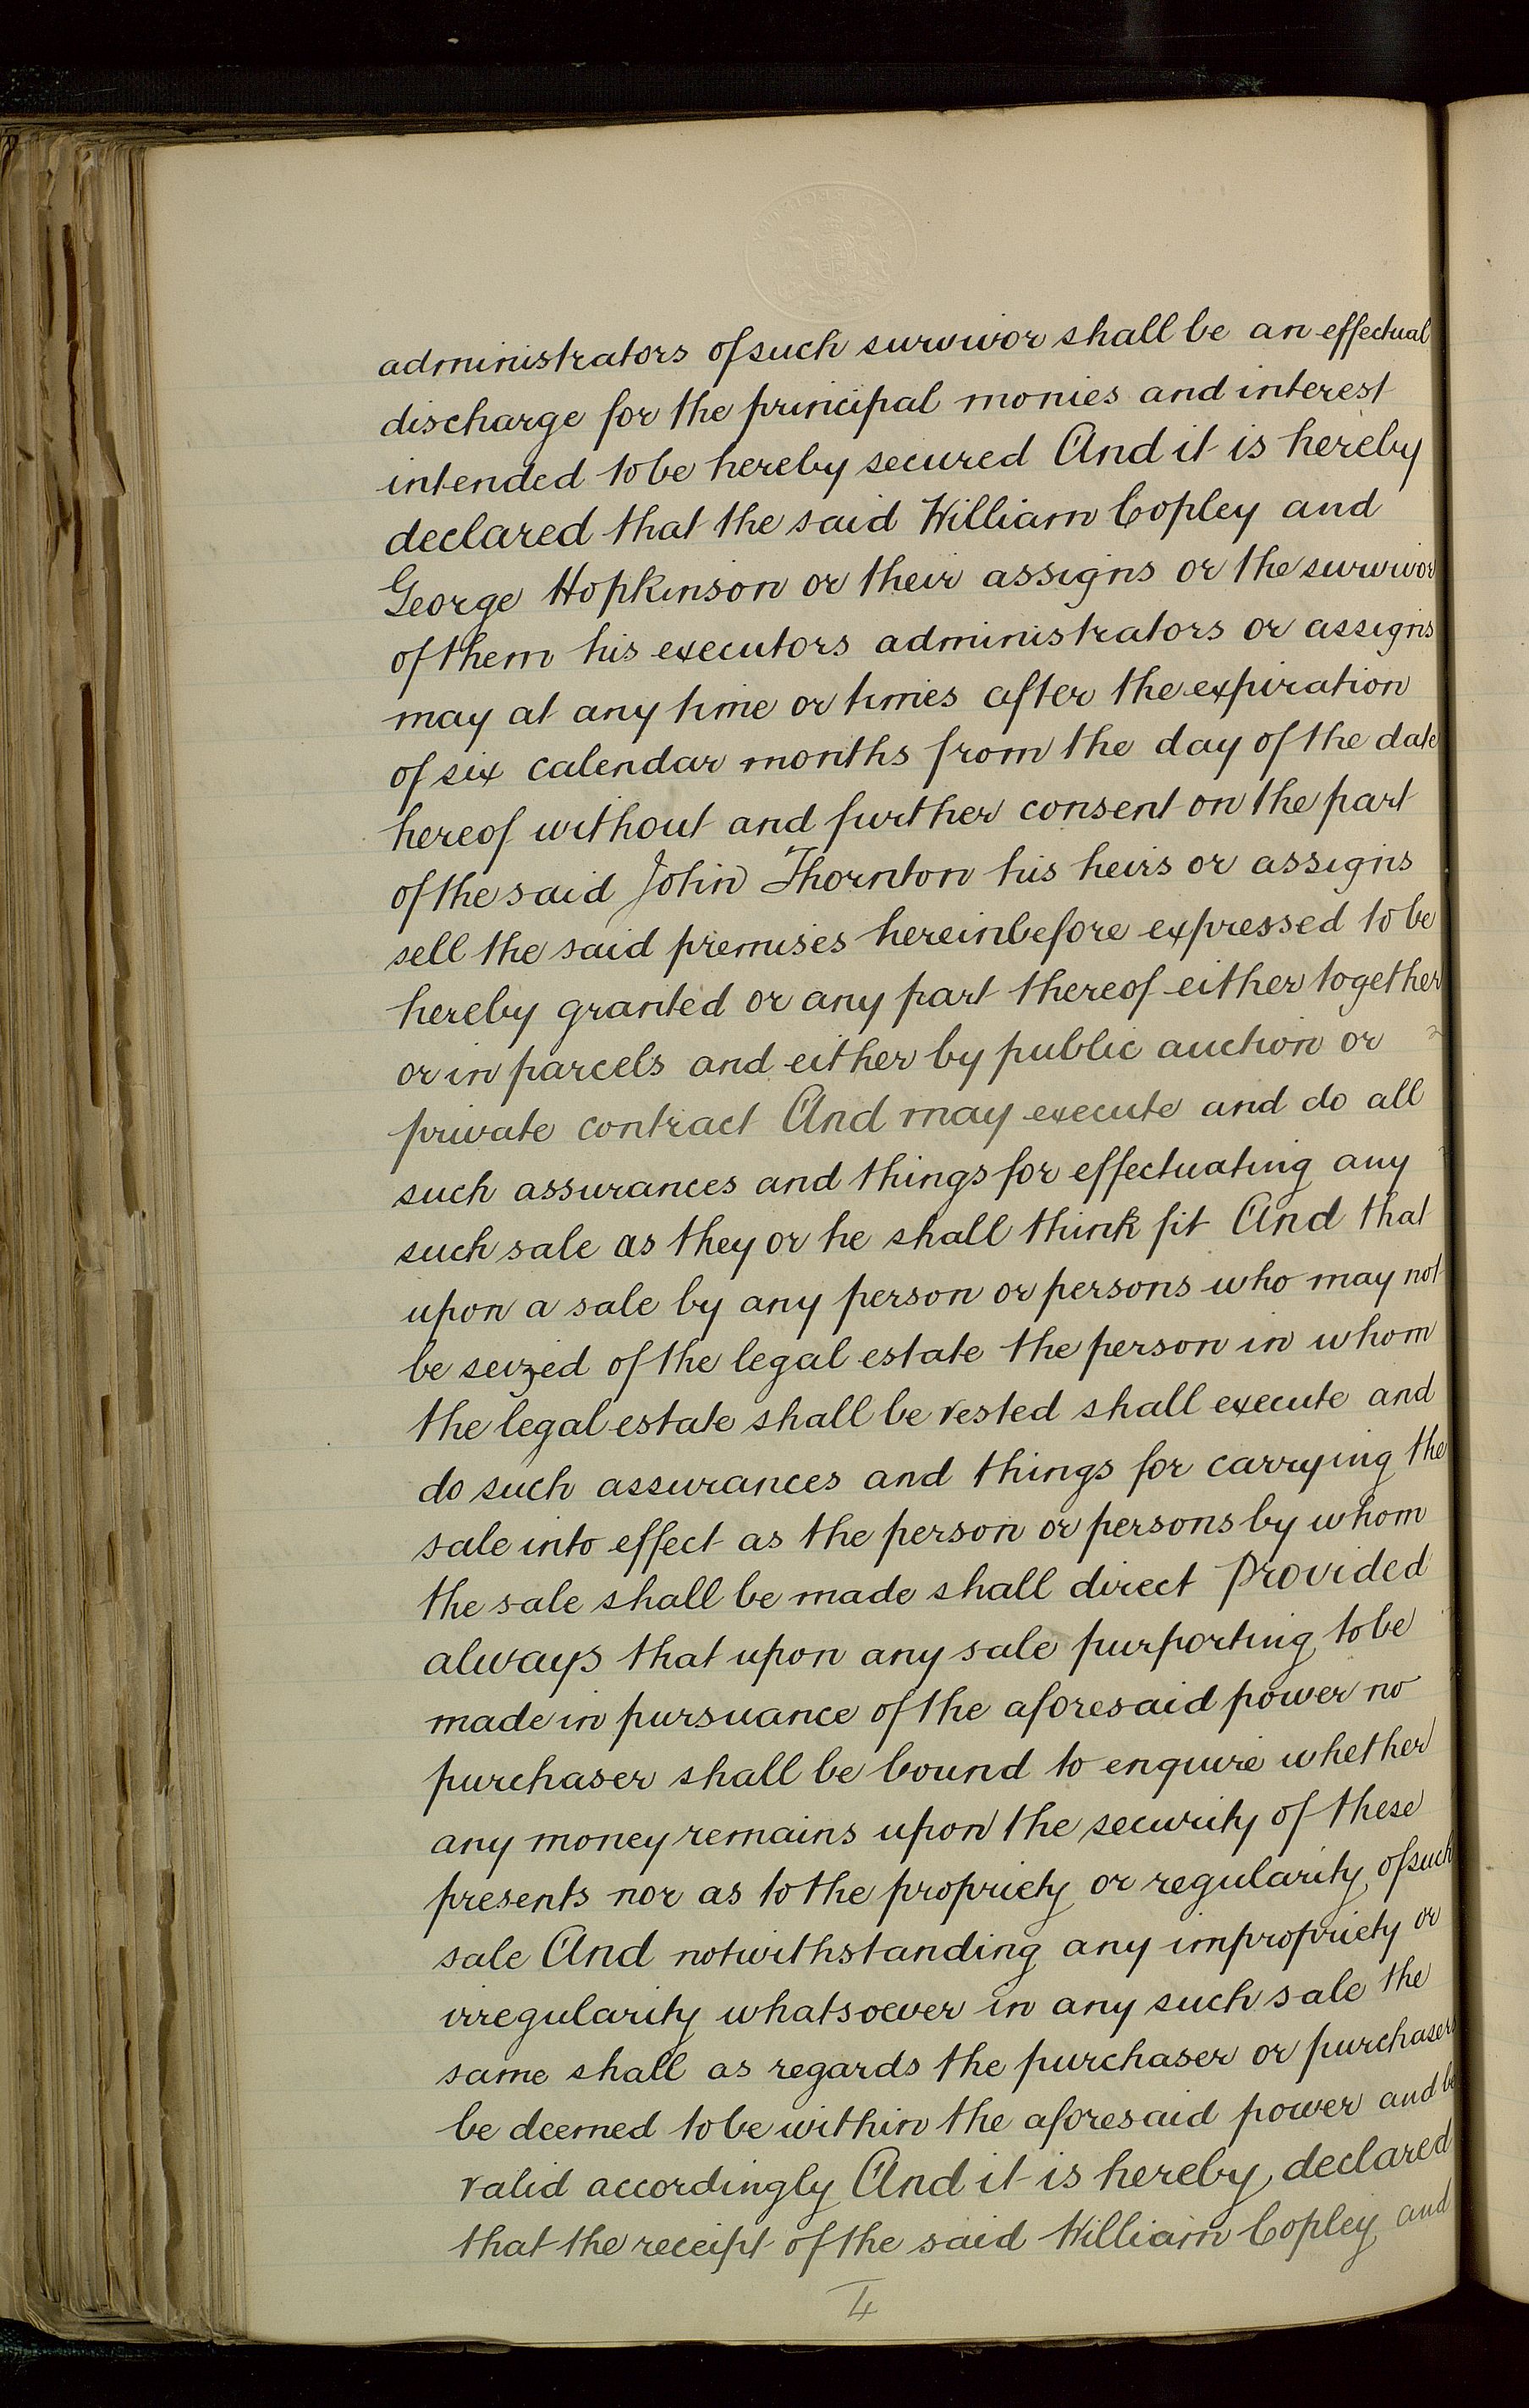 administrators of such survivor shall be an effectual
discharge for the principal monies and interest
intended to be hereby secured And it is hereby
declared that the said William Copley and
George Hopkinson or their assigns or the survivor
of them his executors administrators or assigns
may at any time or times after the expiration
of six calendar months from the day of the date
hereof without and further consent on the part
of the said John Thornton his heirs or assigns
sell the said premises hereinbefore expressed to be
hereby granted or any part thereof either together
or in parcels and either by public auction or
private contract And may execute and do all
such assurances and things for effectuating any
such sale as they or he shall think fit And that
upon a sale by any person or persons who may not
be seized of the legal estate the person in whom
the legal estate shall be vested shall execute and
do such assurances and things for carrying the
sale into effect as the person or persons by whom
the sale shall be made shall direct Provided
always that upon any sale purporting to be
made in pursuance of the aforesaid power no
purchaser shall be bound to enquire whether
any money remains upon the security of these
presents nor as to the propriety or regularity of such
sale And notwithstanding any impropriety or
irregularity whatsoever in any such sale the
same shall as regards the purchaser or purchasers
be deemed to be within the aforesaid power and be
valid accordingly And it is hereby declared
that the receipt of the said William Copley and
4